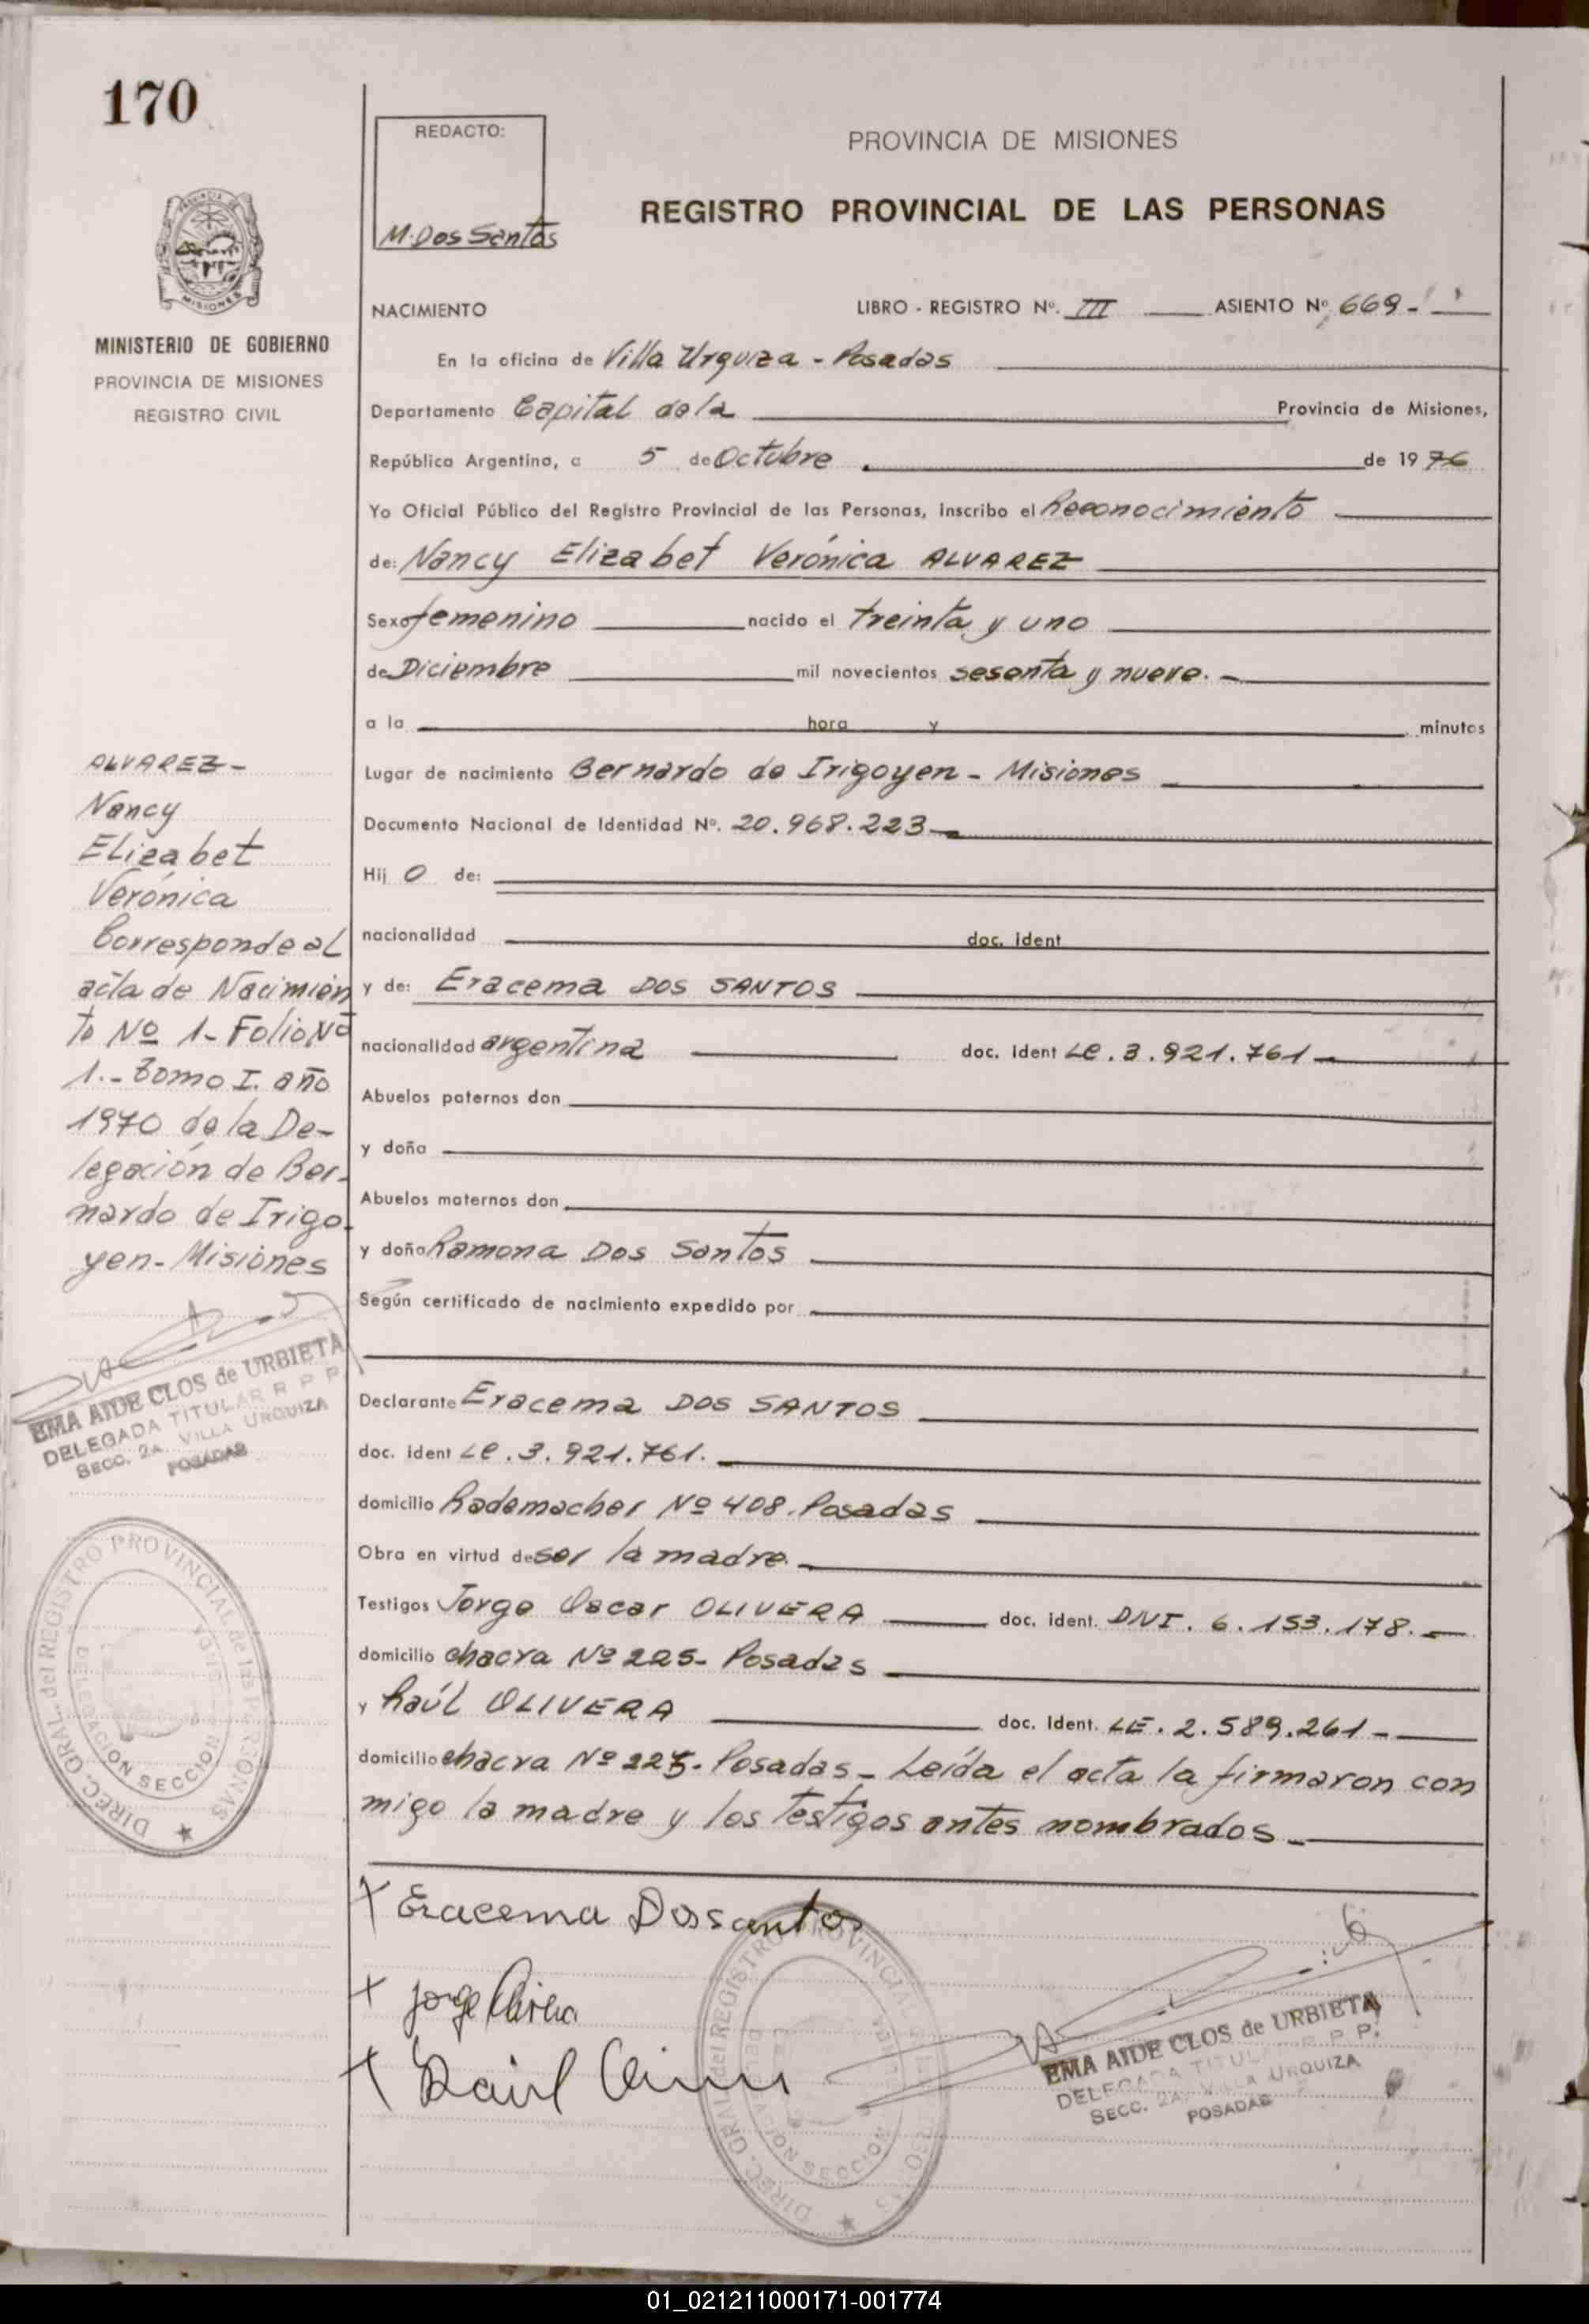 170
REDACTO:
M. Dos Santos
PROVINCIA DE MISIONES
REGISTRO PROVINCIAL DE LAS PERSONAS
MISIONES
MINISTERIO DE GOBIERNO
PROVINCIA DE MISIONES
REGISTRO CIVIL
NACIMIENTO LIBRO - REGISTRO Nº. III ASIENTO Nº 669-
En la oficina de Villa Urquiza - Posadas
Departamento Capital de la Provincia de Misiones,
República Argentina, a 5 de Octubre de 1976
Yo Oficial Público del Registro Provincial de las Personas, inscribo el Reconocimiento
de: Nancy Elizabet Verónica ALVAREZ
Sexo femenino nacido el treinta y uno
de Diciembre mil novecientos sesenta y nueve.-
a la hora y minutos
Lugar de nacimiento Bernardo de Irigoyen - Misiones
Documento Nacional de Identidad Nº. 20.968.223-
Hij o de:
nacionalidad doc. ident
y de: Eracema DOS SANTOS
nacionalidad argentina doc. ident LE. 3.921.761-
Abuelos paternos don
y doña
Abuelos maternos don
y doña Ramona Dos Santos
Según certificado de nacimiento expedido por
Declarante Eracema DOS SANTOS
doc. ident LE. 3.921.761.
domicilio Rademacher Nº 408. Posadas
Obra en virtud de ser la madre.
Testigos Jorge Oscar OLIVERA doc. ident. DNI. 6.153.178.-
domicilio chacra Nº 225- Posadas
y Raúl OLIVERA doc. Ident. LE. 2.589.261-
domicilio chacra Nº 225- Posadas- Leída el acta la firmaron con
migo la madre y los testigos antes nombrados-
ALVAREZ-
Nancy
Elizabet
Verónica
Corresponde al
acta de Nacimien
to Nº 1- Folio Nº
1.- Tomo I. año
1970 de la De-
legación de Ber-
nardo de Irigo-
yen- Misiones
EMA AIDE CLOS de URBIETA
DELEGADA TITULAR R P P
SECC. 2A VILLA URQUIZA
POSADAS
DIREC. GRAL. del REGISTRO PROVINCIAL de las PERSONAS
DELEGACION SECCION
x Eracema Dossantos
x Jorge Olivera
x Raúl
DIREC. GRAL. del REGISTRO PROVINCIAL
SECCION
EMA AIDE CLOS de URBIETA
DELEGADA TITULAR R P P.
SECC. 2A. VILLA URQUIZA
POSADAS
01_021211000171-001774